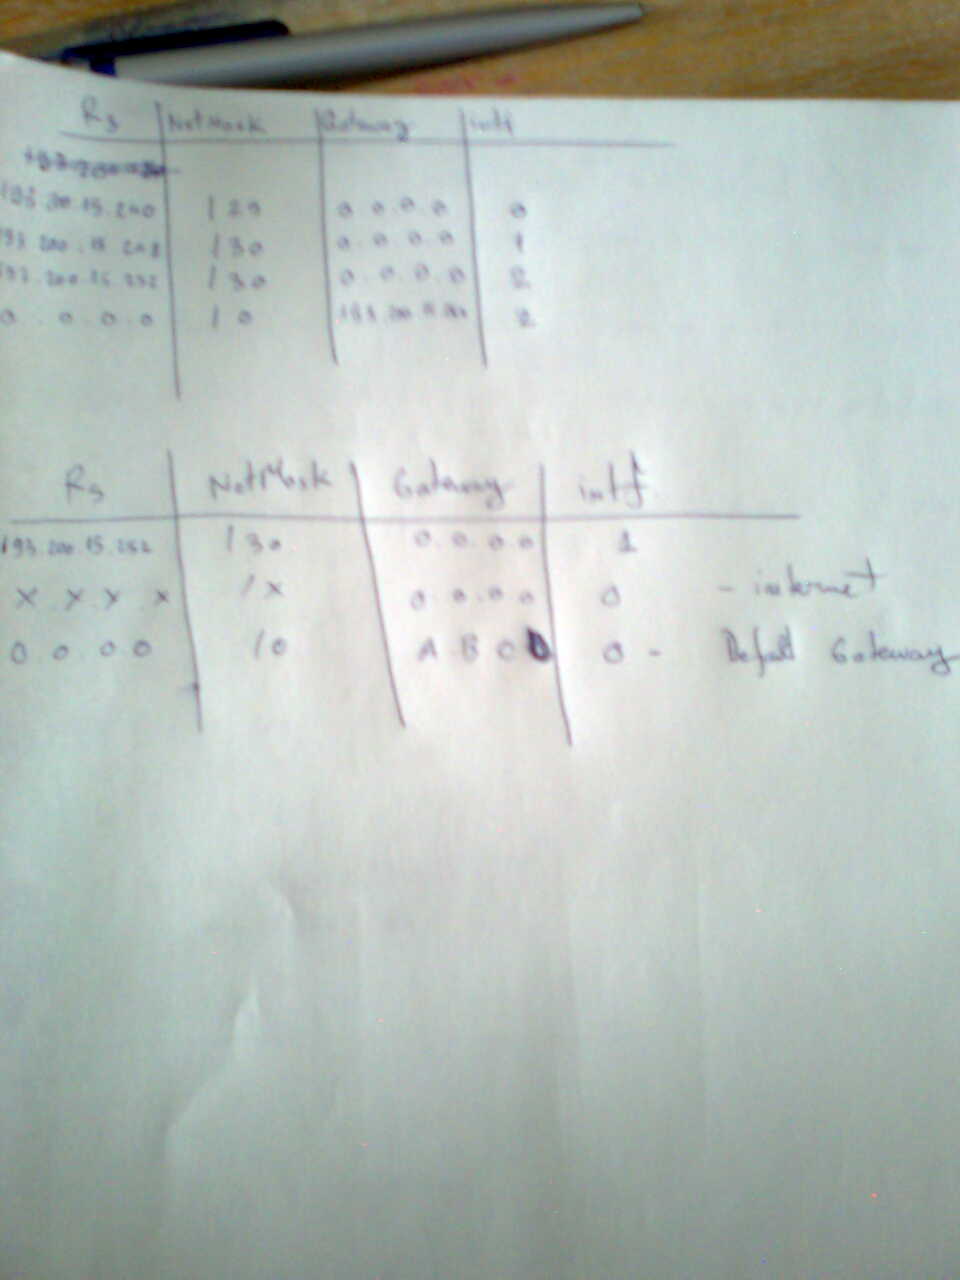 Rs NetMask Gateway intf
193.20.15.240 /29 0.0.0.0 0
193.200.15.248 /30 0.0.0.0 1
193.200.15.252 /30 0.0.0.0 2
0.0.0.0 /0 2
Rs NetMask Gateway intf
193.200.15.252 /30 0.0.0.0 1
X X X X /X 0.0.0.0 0 - internet
0 0 0 0 /0 A B C D 0 - Defalt Gateway